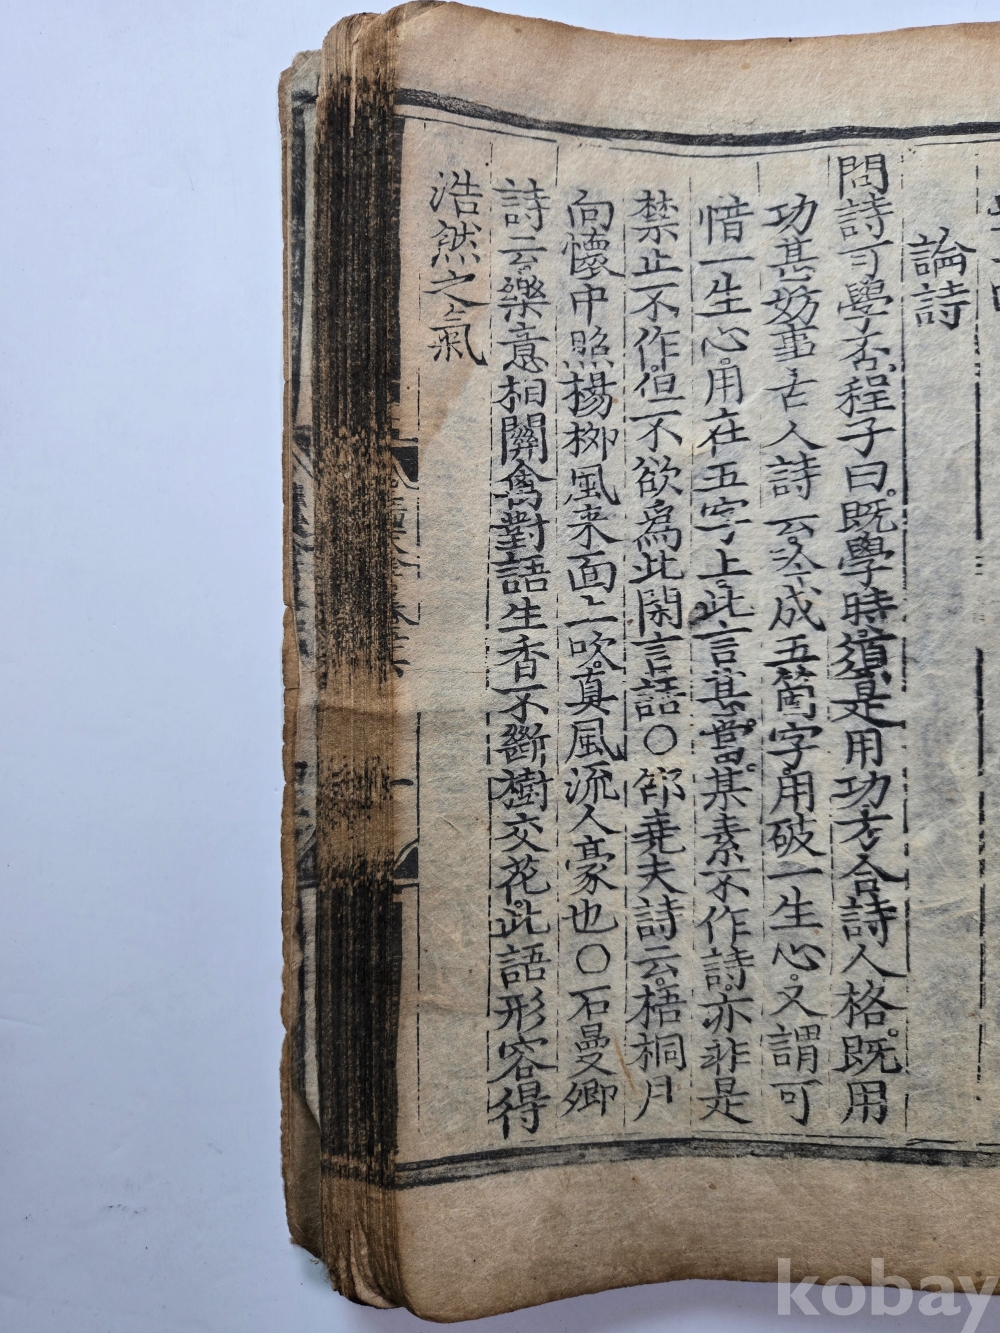 論詩
問詩可學否程子曰既學時須是用功方合詩人格既用
功甚妨事古人詩云吟成五箇字用破一生心又謂可
惜一生心用在五字上此言甚當某素不作詩亦非是
禁止不作但不欲爲此閑言語○邵堯夫詩云梧桐月
向懷中照楊柳風来面上吹真風流人豪也○石曼卿
詩云樂意相關禽對語生香不斷樹交花此語形容得
浩然之氣
kobay